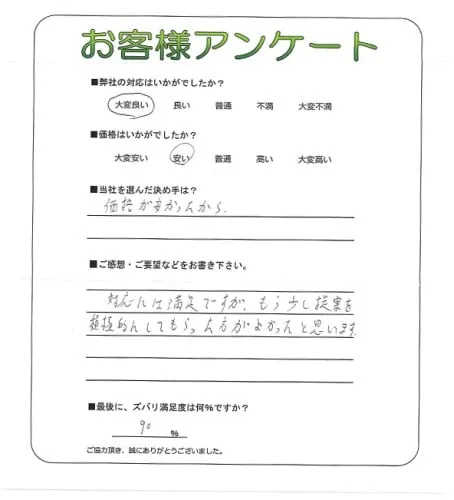 お客様アンケート
■弊社の対応はいかがでしたか？
大変良い 良い 普通 不満 大変不満
■価格はいかがでしたか？
大変安い 安い 普通 高い 大変高い
■当社を選んだ決め手は？
価格が安かったから.
■ご感想・ご要望などをお書き下さい。
対応には満足ですが、もう少し提案を
積極的にしてもらった方がよかったと思います.
■最後に、ズバリ満足度は何％ですか？
90 ％
ご協力頂き、誠にありがとうございました。